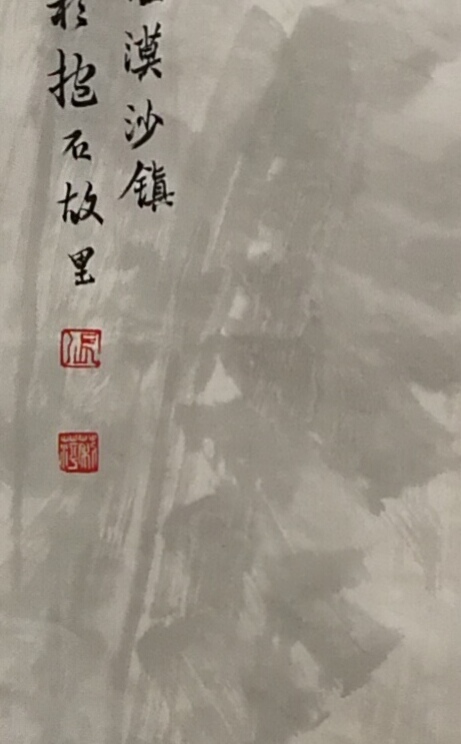 漠沙鎮
於抱石故里